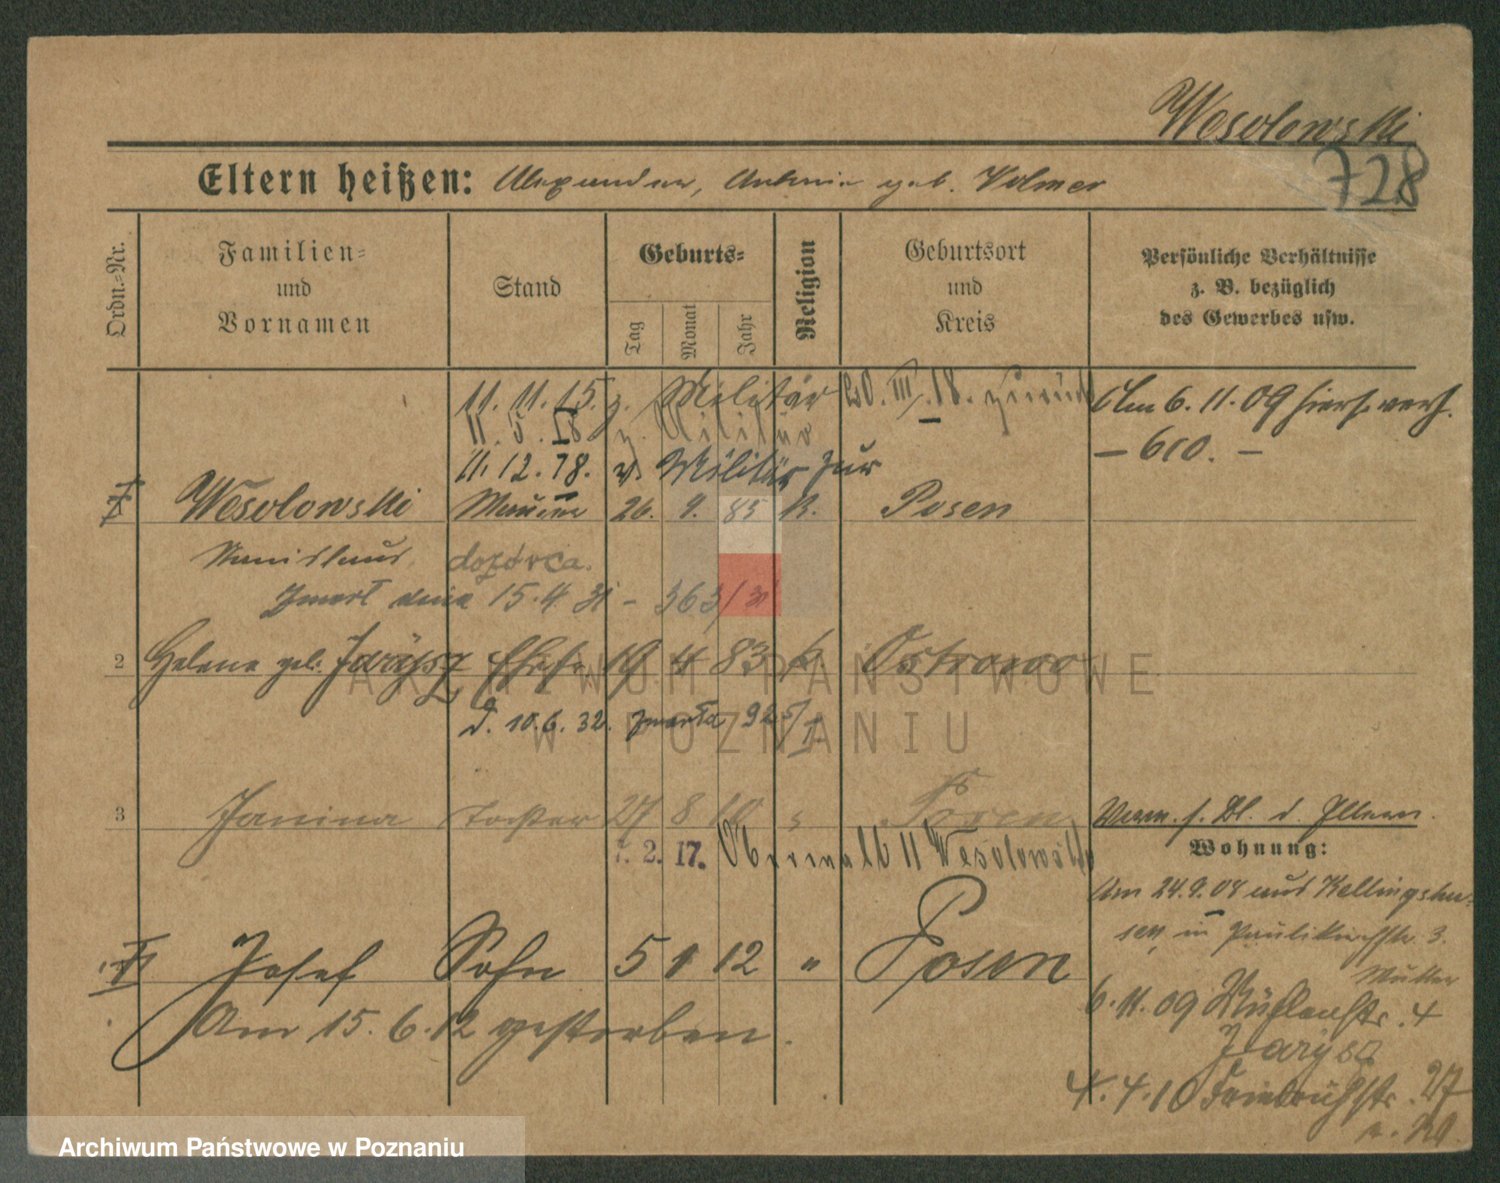 Wesolowski
728
Eltern heißen: Alexander, Antonie geb. Volmer
Ordn.-Nr.
Familien- und Vornamen
Stand
Geburts-
Tag
Monat
Jahr
Religion
Geburtsort und Kreis
Persönliche Verhältnisse z. B. bezüglich des Gewerbes usw.
11. 11. 15. z. Militär 20. III. 18. zurück
11. 5. 18 z. Militär
11. 12. 18. v. Militär zur
Am 6. 11. 09 hierh. verh.
– 610. –
Wesolowski Maurer 26. 9. 85 K. Posen
Stanislaus, dozórca.
Zmarł dnia 15. 4. 31 - 363/31
2 Helene geb. Ehefr. 19 4 83 k. Ostrowo
d. 10. 6. 32. zmarła
3 Janina Tochter 27 8 10 " Posen
Verm. s. Bl. d. Eltern.
7. 2. 17. Wesolowski
Wohnung:
Am 24. 9. 08 aus Kellinghu-
sen in Paulikirchstr. 3.
Josef Sohn 5 1 12 " Posen
Mutter
6. 11. 09 Mühlenstr. 4
Am 15. 6. 12 gestorben.
4. 4. 10 27
ARCHIWUM PAŃSTWOWE
W POZNANIU
Archiwum Państwowe w Poznaniu